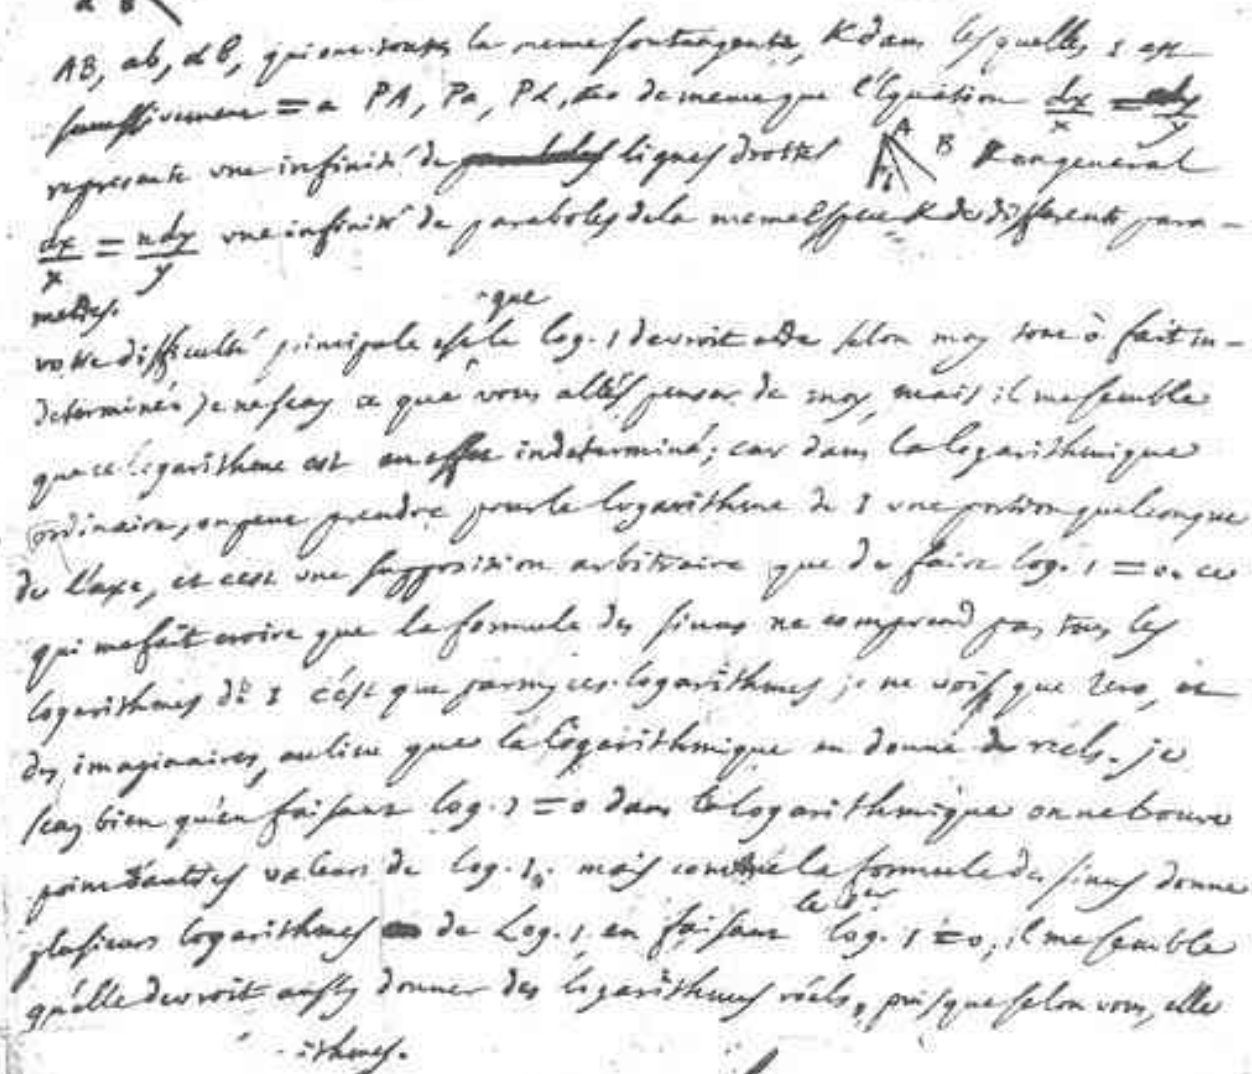 α β
AB, ab, αβ, qui ont toutes la meme soutangente, & dans lesquelles 1 est
successivement = a PA, Pa, Pα, &c de meme que l'Equation dx/x = dy/y
represente une infinité de lignes droites A B & en general
dx/x = ndy/y une infinité de paraboles de la meme espece & de differents para-
metres.
votre difficulté principale est que le log. 1 devroit etre selon moy tout à fait in-
determiné; je ne scay ce que vous allés penser de moy, mais il me semble
que ce logarithme est en effet indeterminé; car dans la logarithmique
ordinaire, on peut prendre pour le logarithme de 1 une portion quelconque
de l'axe, et c'est une supposition arbitraire que de faire log. 1 = 0. ce
qui me fait croire que la formule des sinus ne comprend pas tous les
logarithmes de 1 c'est que parmy ces logarithmes je ne vois que zero, et
des imaginaires, au lieu que la logarithmique en donne de réels. je
scay bien qu'en faisant log. 1 = 0 dans la logarithmique on ne trouve
point d'autres valeurs de log. 1, mais comme la formule des sinus donne
plusieurs logarithmes de Log. 1, en faisant le log. 1 = 0, il me semble
qu'elle devroit aussy donner des logarithmes réels, puisque selon vous, elle
ithmes.